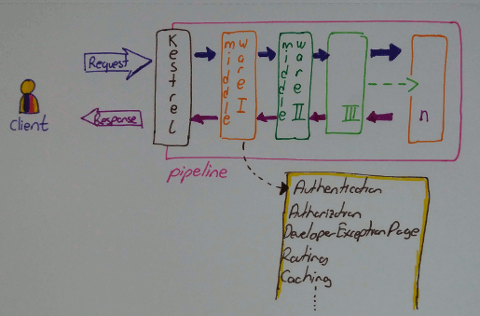 Request
Client
Response
Kestrel
middle
ware I
middle
ware II
III
n
pipeline
Authentication
Authorization
DeveloperExceptionPage
Routing
Caching